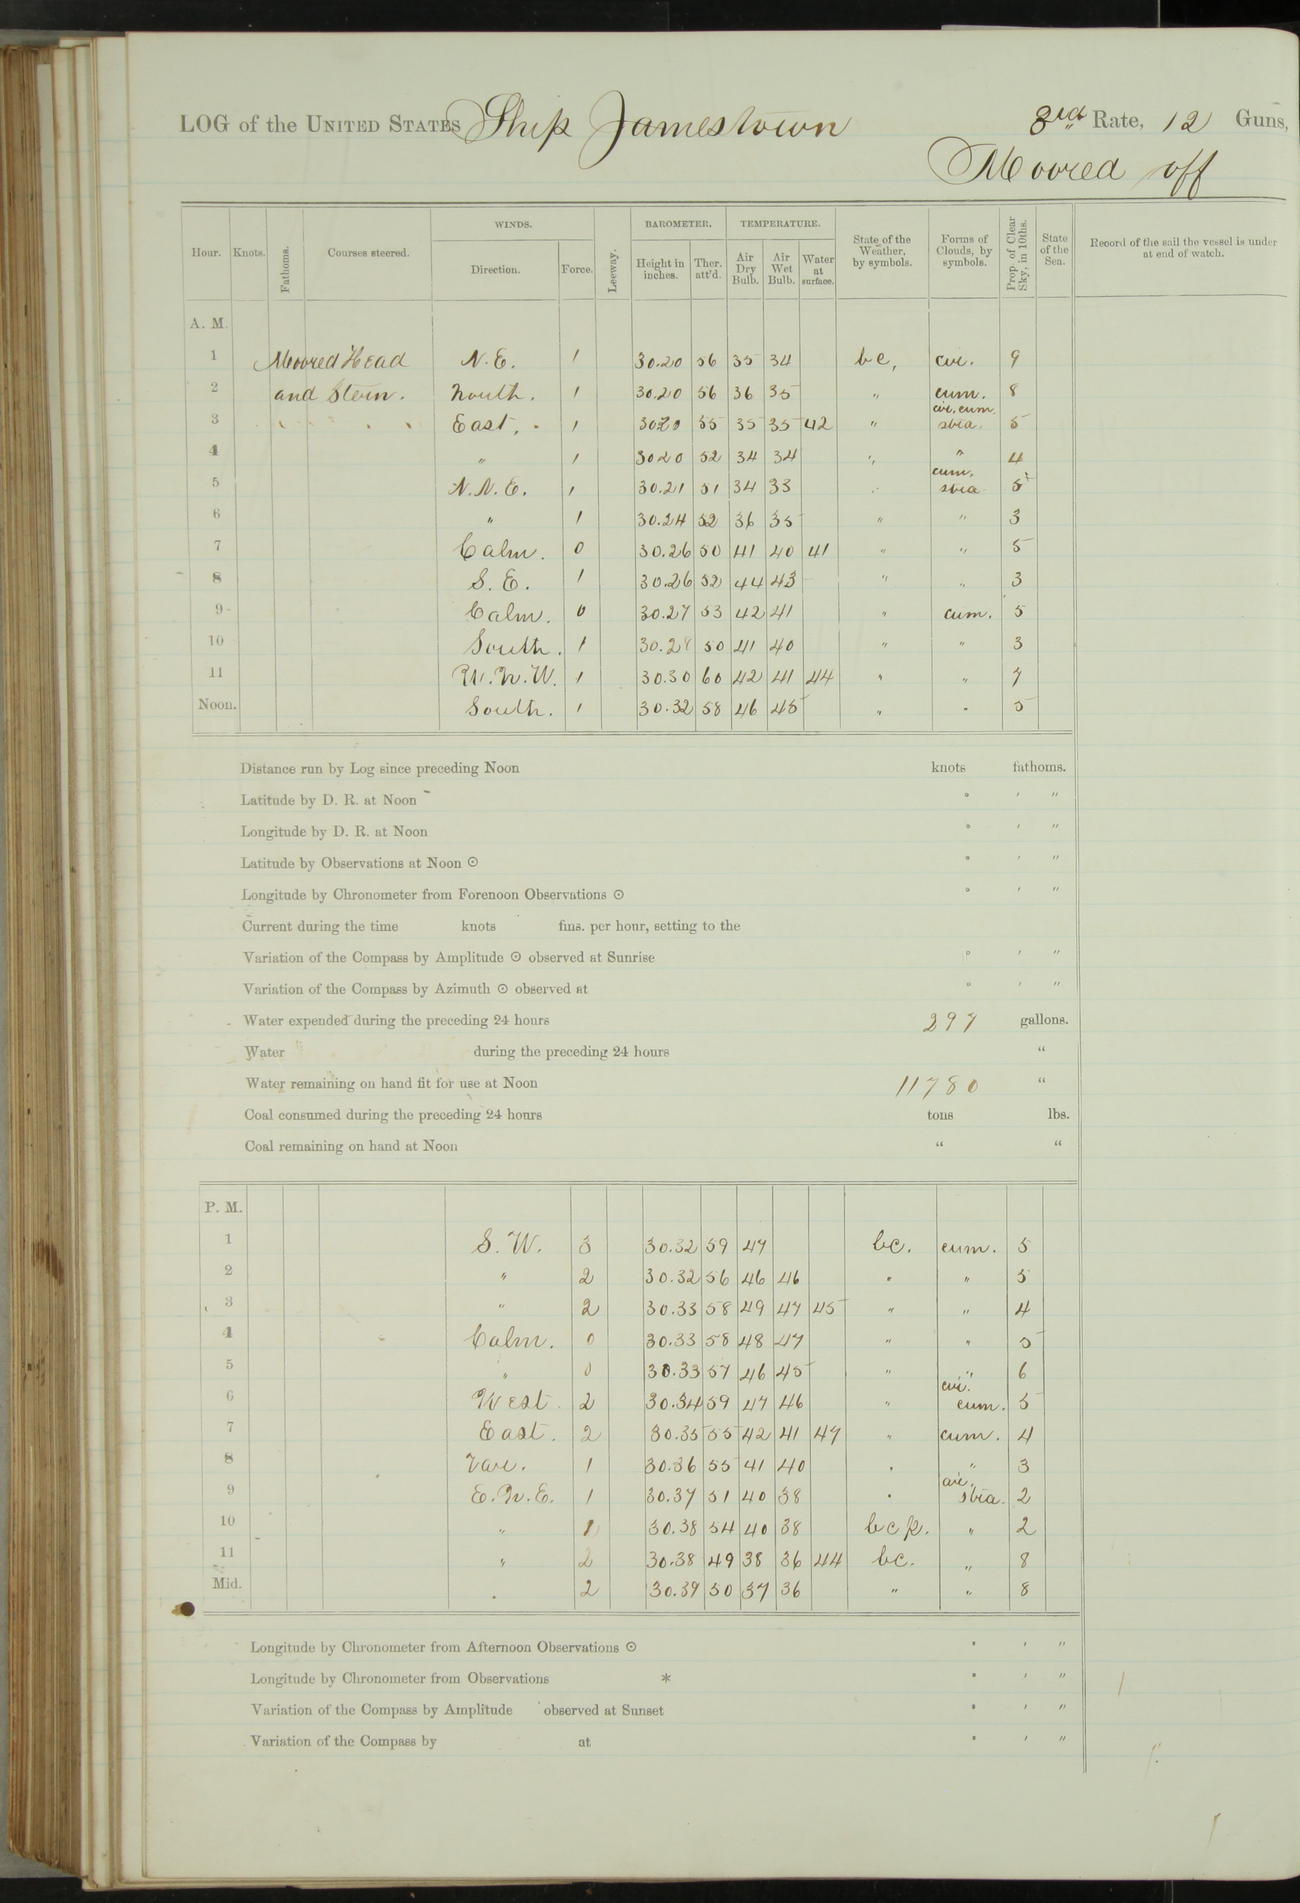 LOG of the UNITED STATES Ship Jamestown 3rd Rate, 12 Guns,
Moored off
Hour. Knots. Fathoms. Courses steered. WINDS. Direction. Force. Leeway. BAROMETER. Height in inches. Ther. att'd. TEMPERATURE. Air Dry Bulb. Air Wet Bulb. Water at surface. State of the Weather, by symbols. Forms of Clouds, by symbols. Prop. of Clear Sky, in 10ths. State of the Sea. Record of the sail the vessel is under at end of watch.
A. M.
1 Moored Head N.E. 1 30.20 56 35 34 bc, cir. 9
2 and Stern. North. 1 30.20 56 36 35 " cum. 8
3 " " " East. 1 30.20 55 35 35 42 " cir. cum. stra. 5
4 " 1 30.20 52 34 34 " " 4
5 N.N.E. 1 30.21 51 34 33 " cum. stra 5
6 " 1 30.24 52 36 35 " " 3
7 Calm. 0 30.26 50 41 40 41 " " 5
8 S.E. 1 30.26 52 44 43 " " 3
9 Calm. 0 30.27 53 42 41 " cum. 5
10 South. 1 30.28 50 41 40 " " 3
11 W.N.W. 1 30.30 60 42 41 44 " " 7
Noon. South. 1 30.32 58 46 45 " " 5
Distance run by Log since preceding Noon knots fathoms.
Latitude by D. R. at Noon ° ′ ″
Longitude by D. R. at Noon ° ′ ″
Latitude by Observations at Noon ⊙ ° ′ ″
Longitude by Chronometer from Forenoon Observations ⊙ ° ′ ″
Current during the time knots fms. per hour, setting to the
Variation of the Compass by Amplitude ⊙ observed at Sunrise ° ′ ″
Variation of the Compass by Azimuth ⊙ observed at ° ′ ″
Water expended during the preceding 24 hours 297 gallons.
Water during the preceding 24 hours "
Water remaining on hand fit for use at Noon 11780 "
Coal consumed during the preceding 24 hours tons lbs.
Coal remaining on hand at Noon " "
P. M.
1 S.W. 3 30.32 59 47 bc. cum. 5
2 " 2 30.32 56 46 46 " " 5
3 " 2 30.33 58 49 47 45 " " 4
4 Calm. 0 30.33 58 48 47 " " 5
5 " 0 30.33 57 46 45 " " 6
6 West. 2 30.34 59 47 46 " cir. cum. 5
7 East. 2 30.35 55 42 41 47 " cum. 4
8 Var. 1 30.36 55 41 40 " " 3
9 E.N.E. 1 30.37 51 40 38 " cir. stra. 2
10 " 1 30.38 54 40 38 bcp. " 2
11 " 2 30.38 49 38 36 44 bc. " 8
Mid. " 2 30.39 50 37 36 " " 8
Longitude by Chronometer from Afternoon Observations ⊙ ° ′ ″
Longitude by Chronometer from Observations * ° ′ ″
Variation of the Compass by Amplitude observed at Sunset ° ′ ″
Variation of the Compass by at ° ′ ″